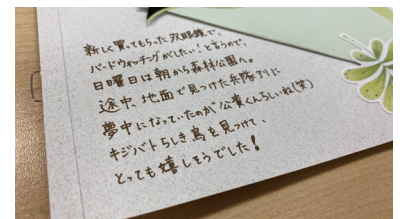 新しく買ってもらった双眼鏡で、
バードウォッチングがしたい！と言うので、
日曜日は朝から森林公園へ。
途中、地面で見つけた兵隊アリに
夢中になっていたのが公貴くんらしいね(笑)
キジバトらしき鳥を見つけて、
とっても嬉しそうでした！